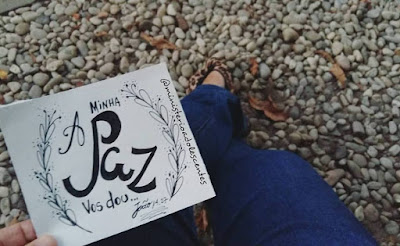 MINHA
A PAZ
VOS DOU...
JOÃO 14:27
@ministerioadolescentes